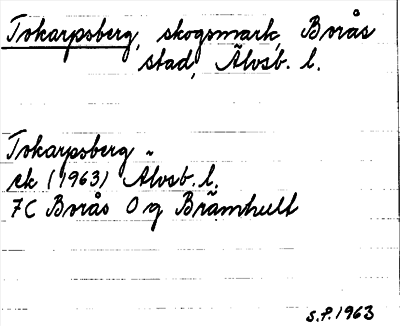 Tokarpsberg, skogsmark, Borås
stad, Älvsb. l.
Tokarpsberg -
ek (1963) Älvsb. l.
7C Borås 0 g Brämhult
S.F. 1963